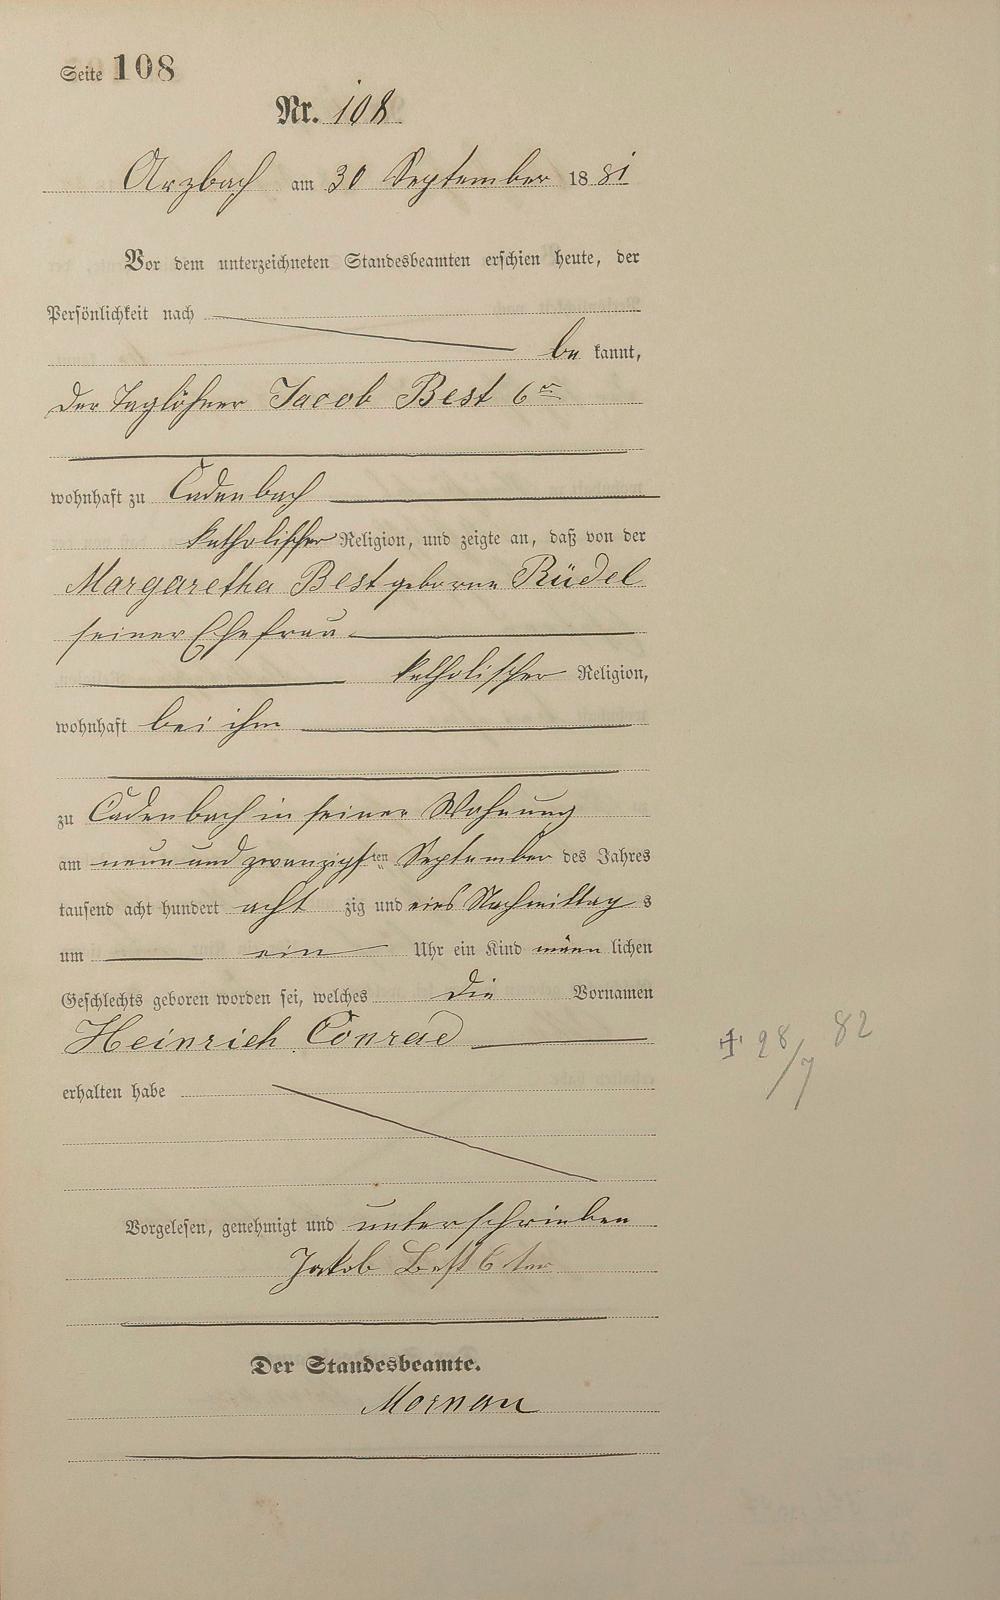 Seite 108
Nr. 108
Arzbach am 30 September 1881
Vor dem unterzeichneten Standesbeamten erschien heute, der
Persönlichkeit nach
be kannt,
der Taglöhner Jacob Best 6er
wohnhaft zu Cadenbach
katholischer Religion, und zeigte an, daß von der
Margaretha Best geborne Rüdel
seiner Ehefrau
katholischer Religion,
wohnhaft bei ihm
zu Cadenbach in seiner Wohnung
am neun und zwanzigsten September des Jahres
tausend acht hundert acht zig und eins Nachmittag s
um ein Uhr ein Kind männ lichen
Geschlechts geboren worden sei, welches die Vornamen
Heinrich Conrad
† 28/7 82
erhalten habe
Vorgelesen, genehmigt und unterschrieben
Jakob Best 6 ter
Der Standesbeamte.